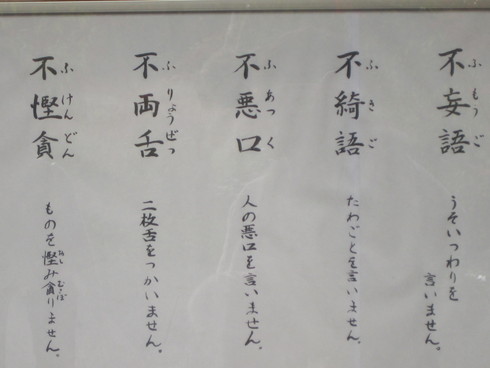 不妄語
ふもうご
うそいつわりを
言いません。
不綺語
ふきご
たわごとを言いません。
不悪口
ふあっく
人の悪口を言いません。
不両舌
ふりょうぜつ
二枚舌をつかいません。
不慳貪
ふけんどん
ものを慳み貪りません。
おし
むさぼ